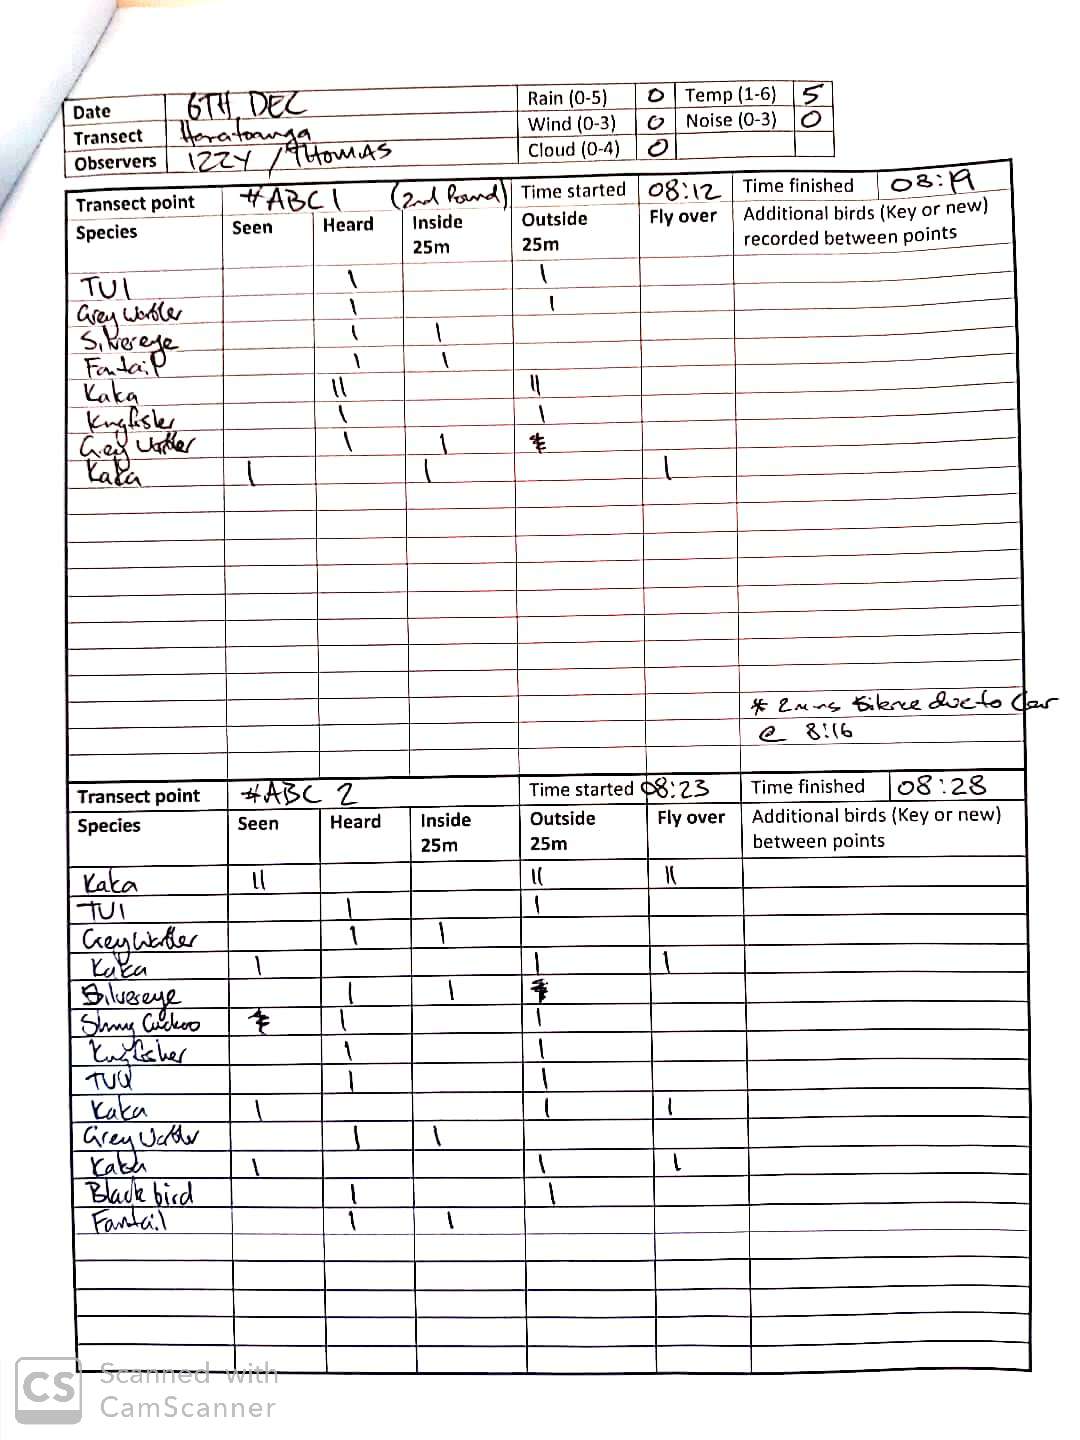 Date 6TH DEC Rain (0-5) 0 Temp (1-6) 5
Transect Haratounga Wind (0-3) 0 Noise (0-3) 0
Observers IZZY / THOMAS Cloud (0-4) 0
Transect point #ABC 1 (2nd Round) Time started 08:12 Time finished 08:19
Species Seen Heard Inside 25m Outside 25m Fly over Additional birds (Key or new) recorded between points
TUI I I
Grey Warbler I I
Silvereye I I
Fantail I I
Kaka II II
Kingfisher I I
Grey Warbler I I
Kaka I I I
* 2 mins silence due to Car
@ 8:16
Transect point #ABC 2 Time started 08:23 Time finished 08:28
Species Seen Heard Inside 25m Outside 25m Fly over Additional birds (Key or new) between points
Kaka II II II
TUI I I
Grey Warbler I I
Kaka I I I
Silvereye I I
Shiny Cuckoo I I
Kingfisher I I
TUI I I
Kaka I I I
Grey Warbler I I
Kaka I I I
Black bird I I
Fantail I I
CS Scanned with
CamScanner